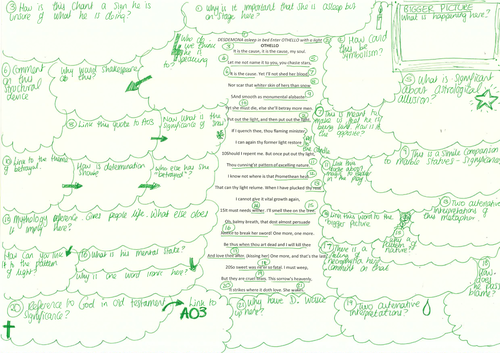 ③ How is this chant a sign he is unsure of what he is doing?
② Why is it important that she is asleep but on stage here?
BIGGER PICTURE
What is happening here?
DESDEMONA asleep in bed Enter OTHELLO with a light
OTHELLO
It is the cause, it is the cause, my soul.
Let me not name it to you, you chaste stars,
It is the cause. Yet I'll not shed her blood,
Nor scar that whiter skin of hers than snow,
And smooth as monumental alabaster.
Yet she must die, else she'll betray more men.
Put out the light, and then put out the light.
If I quench thee, thou flaming minister,
I can again thy former light restore
Should I repent me. But once put out thy light,
Thou cunning'st pattern of excelling nature,
I know not where is that Promethean heat
That can thy light relume. When I have plucked thy rose
I cannot give it vital growth again,
It must needs wither. I'll smell thee on the tree.
Oh, balmy breath, that dost almost persuade
Justice to break her sword! One more, one more.
Be thus when thou art dead and I will kill thee
And love thee after. (kissing her) One more, and that's the last.
So sweet was ne'er so fatal. I must weep,
But they are cruel tears. This sorrow's heavenly,
It strikes where it doth love. She wakes.
Who do we think he is praying to?
④ How could this be symbolism?
⑤ What is significant about astrological allusion?
⑥ Comment on this structural device
Why would Shakespeare do this?
Link this quote to AO3
Now what is the significance of snow
This is a simile comparison to marble statues - significance?
Link to the theme of betrayal.
How is determination shown
Who else has she "betrayed"?
Two alternative interpretations of this metaphor
Mythology reference gives people life. What else does it imply here?
Link this word to the bigger picture
How can you link it to the pattern of light?
What is his mental state?
Why is one word ironic here?
There is a feeling of here
Comment on that
How does he pass blame?
⑳ Reference to God in old testament significance?
Link to AO3
Why have D. wake up here?
⑲ Two alternative interpretations?